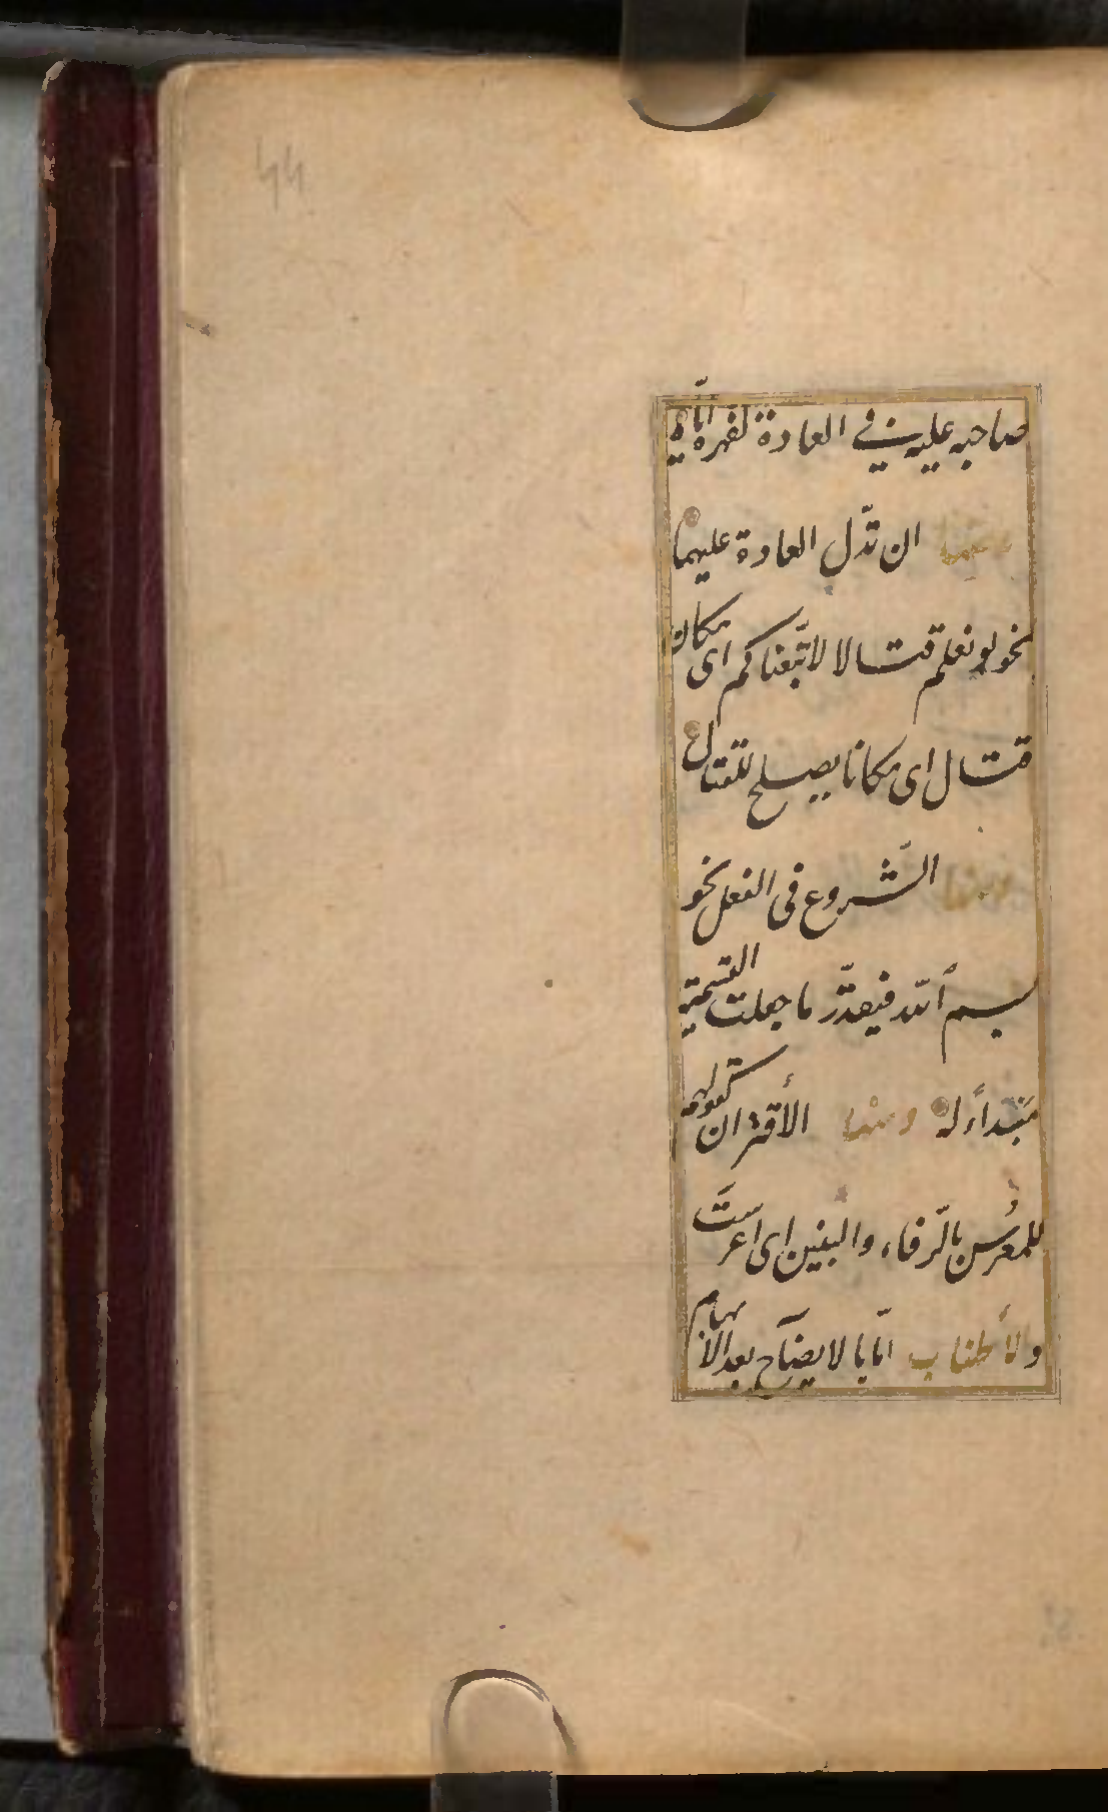 44
صاحبه عليه في العادة لقهره اياه
ومنها ان تدّل العادة عليهما
نحو لو نعلم قتالا لا تّبعناكم اى مكان
قتال اى مكانا يصلح للقتال
ومنها الشّروع فى الفعل نحو
بسم الله فيقدّر ما جعلت التسمية
مبتداء له ومنها الأقتران كقولهم
للمعرس بالرّفاء والبنين اى اعرست
والأطناب امّا بالايضاح بعد الابهام